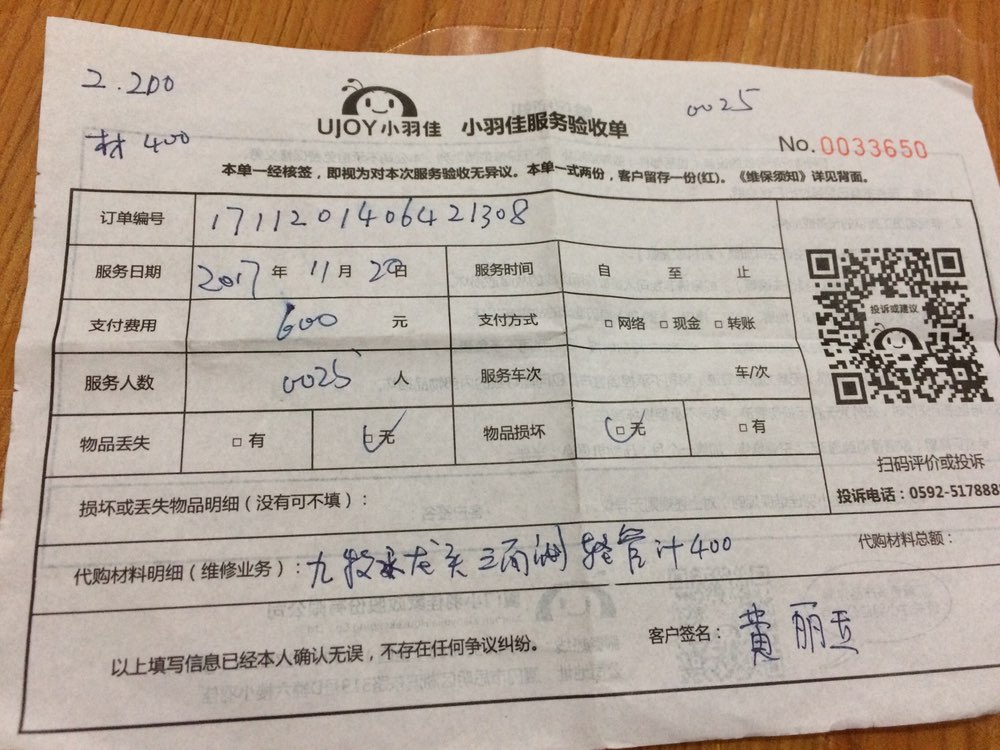 2.200
0025
材 400
UJOY小羽佳 小羽佳服务验收单
No.0033650
本单一经核签，即视为对本次服务验收无异议。本单一式两份，客户留存一份(红)。《维保须知》详见背面。
订单编号 1711201406421308
服务日期 2017 年 11 月 20 日 服务时间 自 至 止
投诉或建议
支付费用 600 元 支付方式 □ 网络 □ 现金 □ 转账
服务人数 0025 人 服务车次 车/次
物品丢失 □ 有 □ 无 物品损坏 □ 无 □ 有
扫码评价或投诉
投诉电话：0592-517888
损坏或丢失物品明细（没有可不填）：
代购材料明细（维修业务）：九牧 龙 三 软管 计400
代购材料总额：
客户签名：费丽亚
以上填写信息已经本人确认无误，不存在任何争议纠纷。